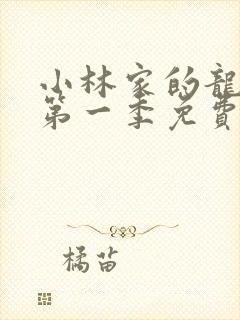 小林家的龍
第一季免費
橘苗